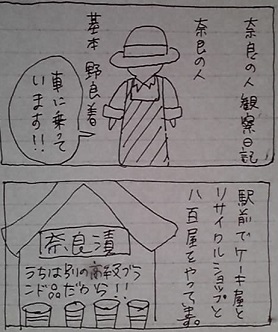 奈良の人観察日記
奈良の人
基本 野良着
車に乗って
います!!
駅前でケーキ屋と
リサイクルショップと
八百屋をやってます。
奈良漬
うちは別の高級ブラ
ンド品だから!!